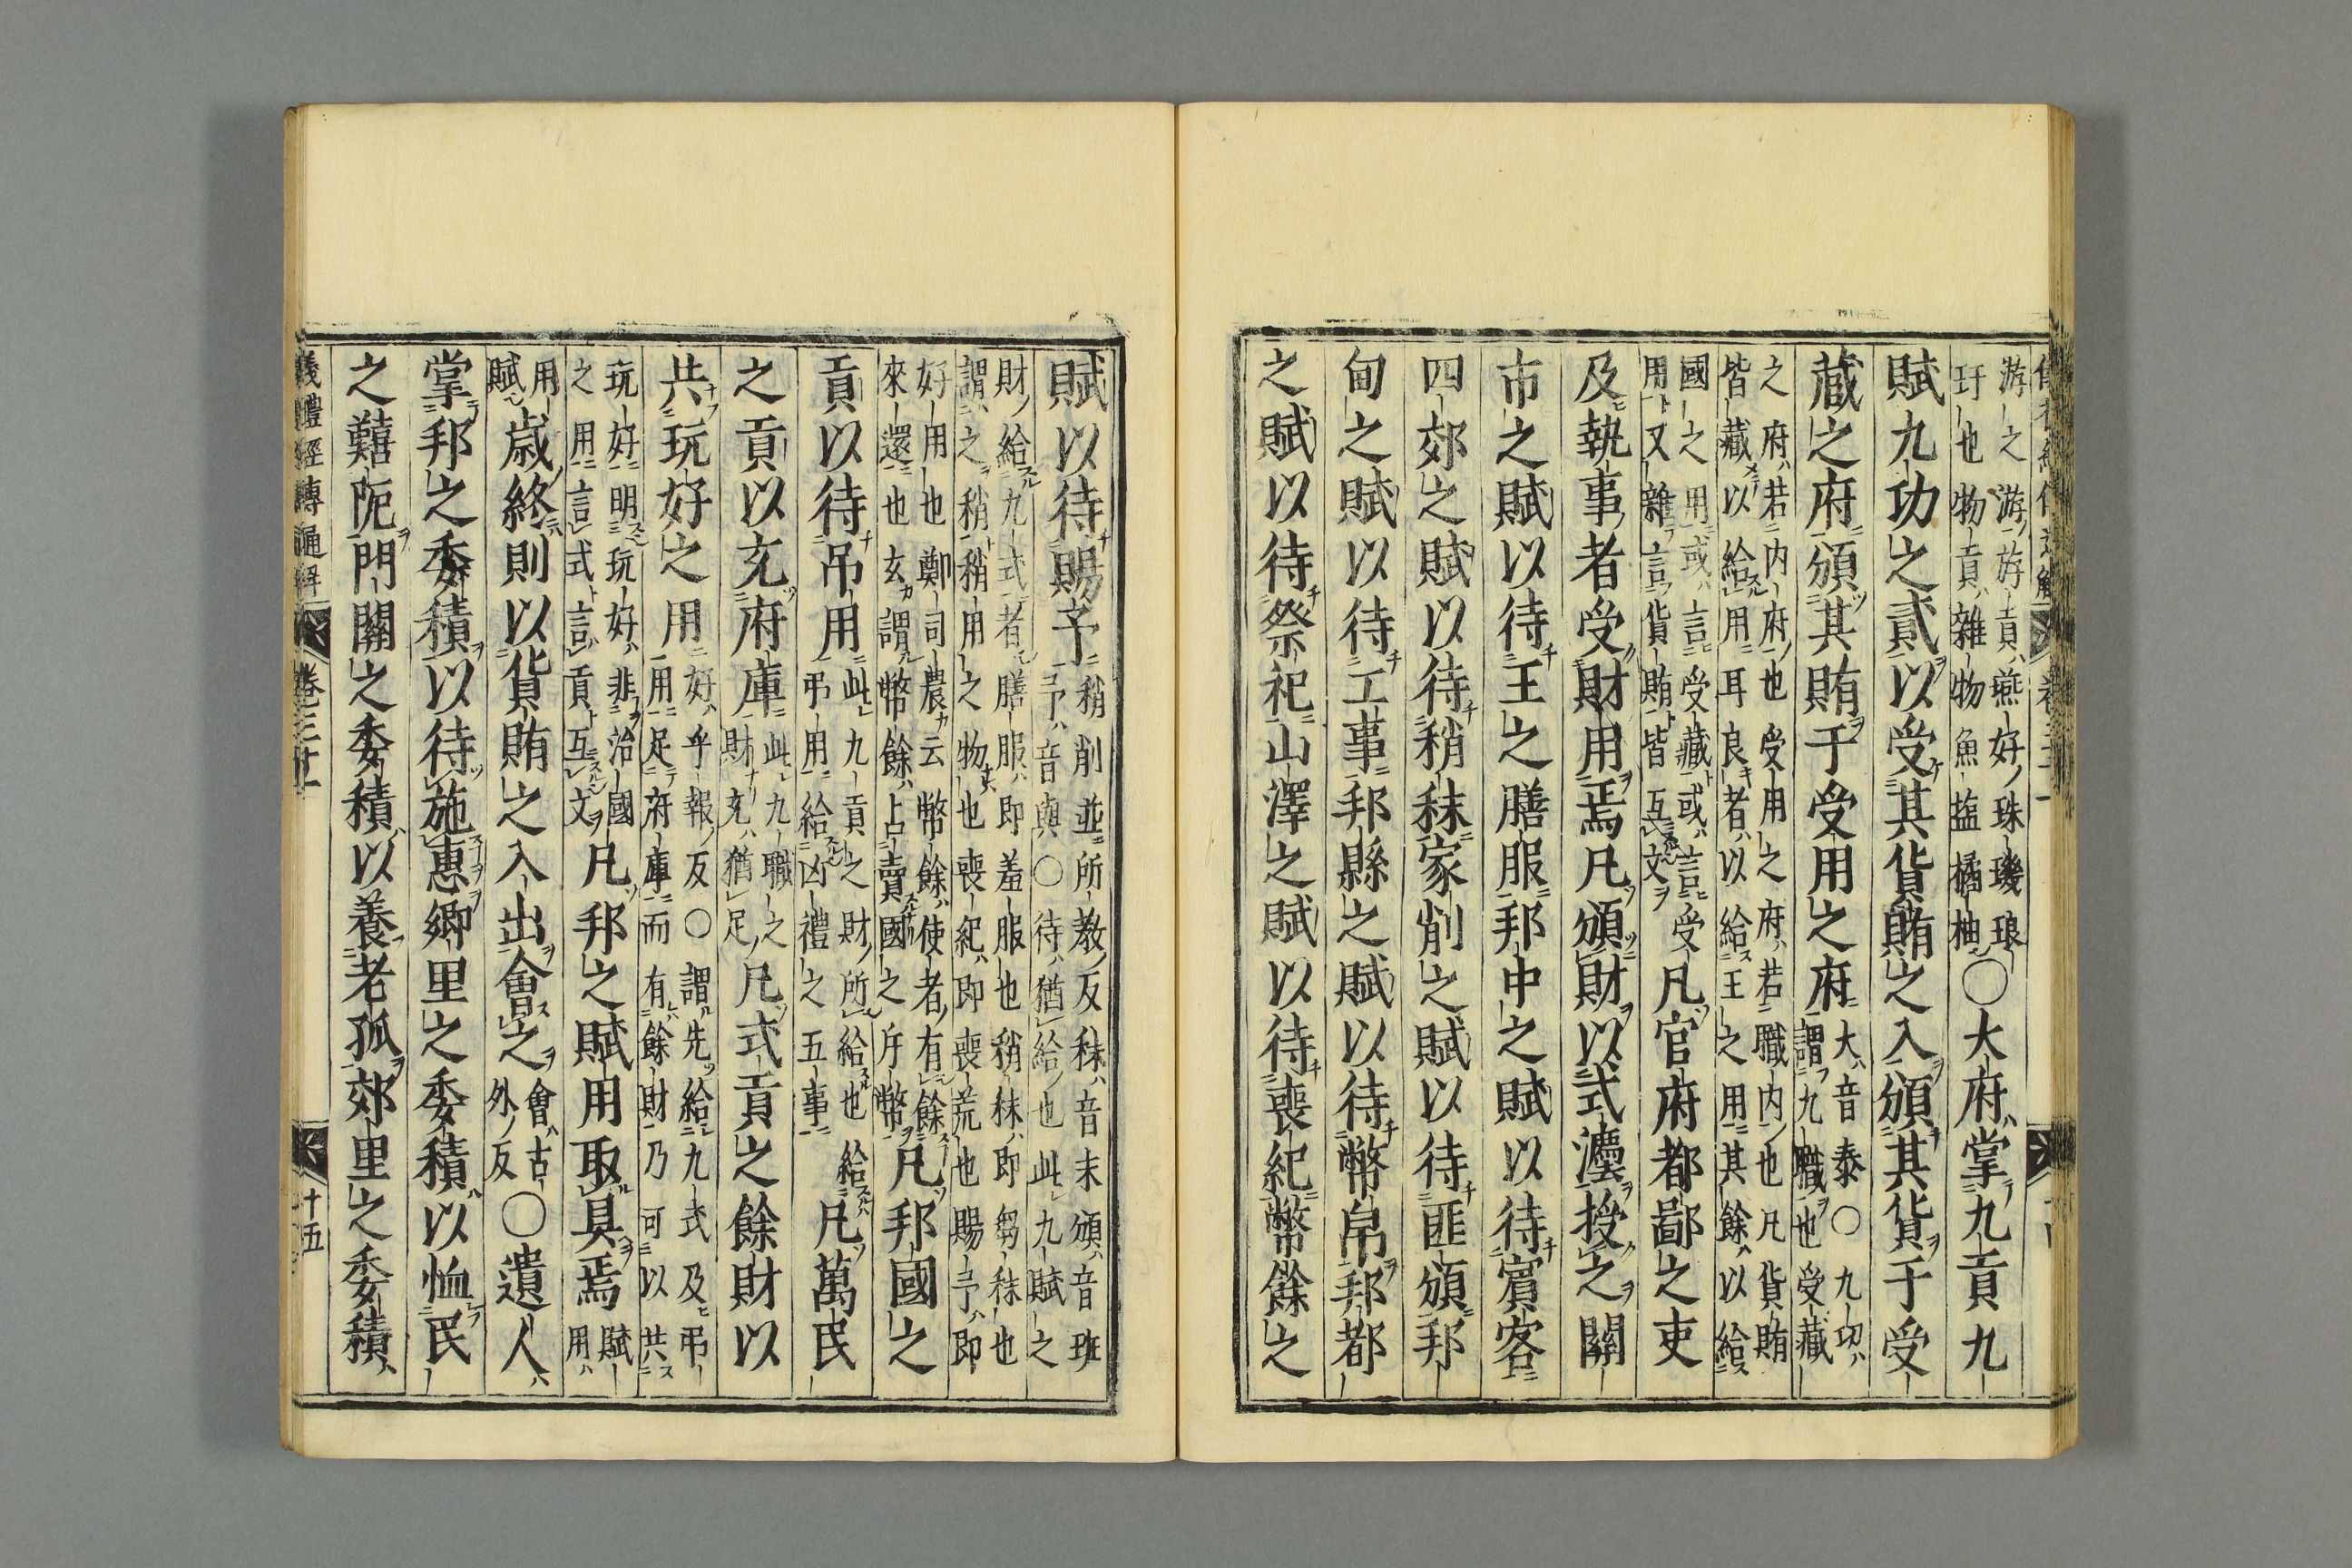 游之游㳺貢燕好珠璣琅
玗也物貢雜物魚盐橘柚
○大府掌九貢九
賦九功之貳以受其貨賄之入頒其貨于受
藏之府頒其賄于受用之府
大音泰○九功
謂九職也受藏
之府若内府也受用之府若職内也凡貨賄
皆藏以給用耳良者以給王之用其餘以給
國之用或言受藏或言受
用又雜言貨賄皆互文
凡官府都鄙之吏
及執事者受財用焉凡頒財以式灋授之關
市之賦以待王之膳服邦中之賦以待賓客
四郊之賦以待稍秣家削之賦以待匪頒邦
甸之賦以待工事邦縣之賦以待幣帛邦都
之賦以待祭祀山澤之賦以待喪紀幣餘之
賦以待賜予
稍削並所教反秣音末頒音班
予音與○待猶給也此九賦之
財給九式者膳服即羞服也稍秣即芻秣也
謂之稍稍用之物也喪紀即喪荒也賜予即
好用也鄭司農云幣餘使者有餘
來還也玄謂幣餘占賣國之斥幣
凡邦國之
貢以待吊用
此九貢之財所給也給
弔用給凶禮之五事
凡萬民
之貢以充府庫
此九職之
財充猶足
凡式貢之餘財以
共玩好之用
好乎報反○謂先給九式及弔
用足府庫而有餘財乃可以共
玩好明玩好非治國
之用言式言貢互文
凡邦之賦用取具焉
賦
用
用
賦
歳終則以貨賄之入出會之
會古
外反
○遺人
掌邦之委積以待施惠鄉里之委積以恤民
之囏阨門關之委積以養老孤郊里之委積
儀禮經傳通解
卷三十一
十五